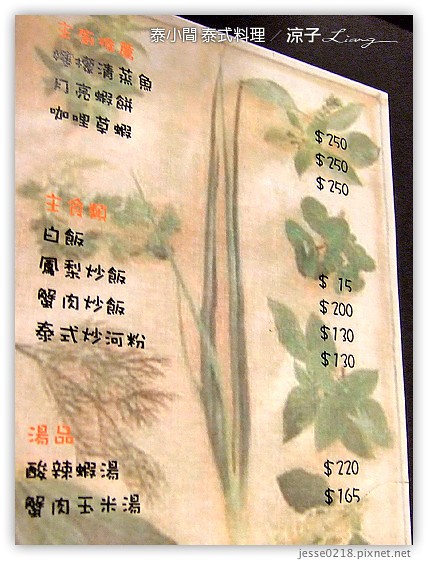 泰小間 泰式料理 / 涼子 Liang
主廚推薦
檸檬清蒸魚 $250
月亮蝦餅 $250
咖哩草蝦 $250
主食類
白飯 $ 15
鳳梨炒飯 $200
蟹肉炒飯 $130
泰式炒河粉 $130
湯品
酸辣蝦湯 $220
蟹肉玉米湯 $165
jesse0218.pixnet.net